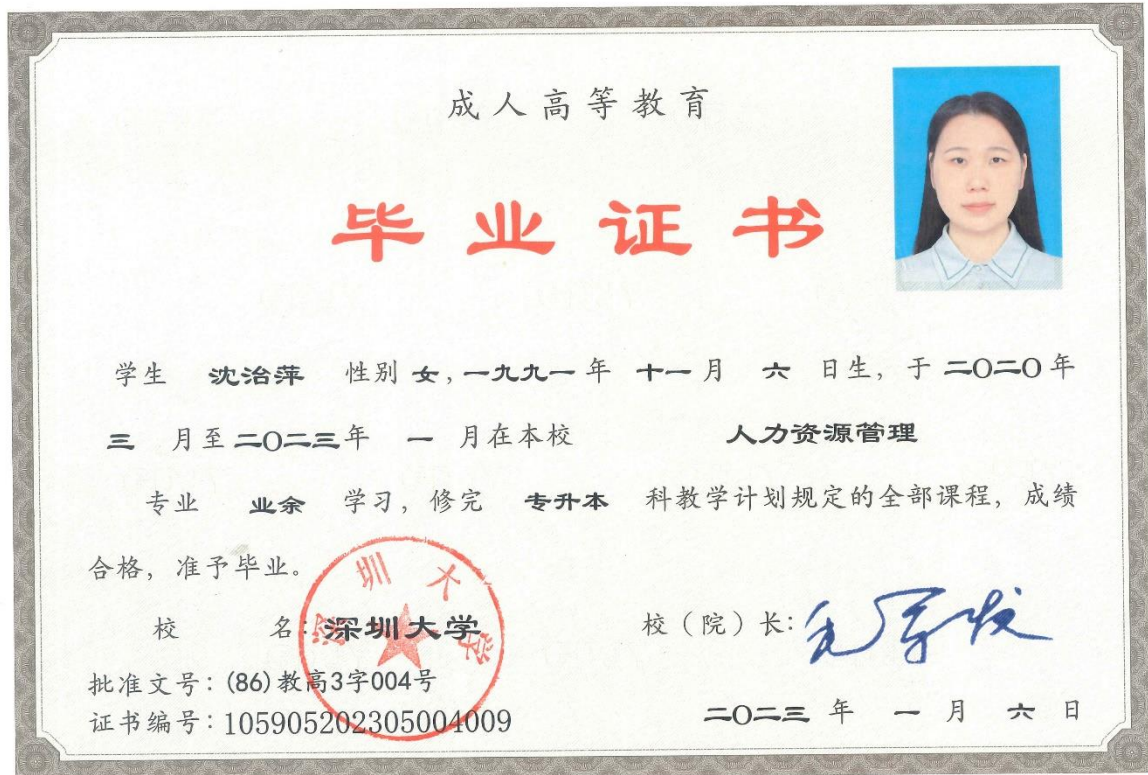 成人高等教育
毕业证书
学生 沈治萍 性别 女,一九九一年 十一月 六 日生, 于 二〇二〇年
三 月至二〇二三年 一 月在本校 人力资源管理
专业 业余 学习, 修完 专升本 科教学计划规定的全部课程, 成绩
合格, 准予毕业。
深圳大学
校 名: 深圳大学 校(院)长: 毛军发
批准文号: (86)教高3字004号
证书编号: 105905202305004009
二〇二三 年 一 月 六 日